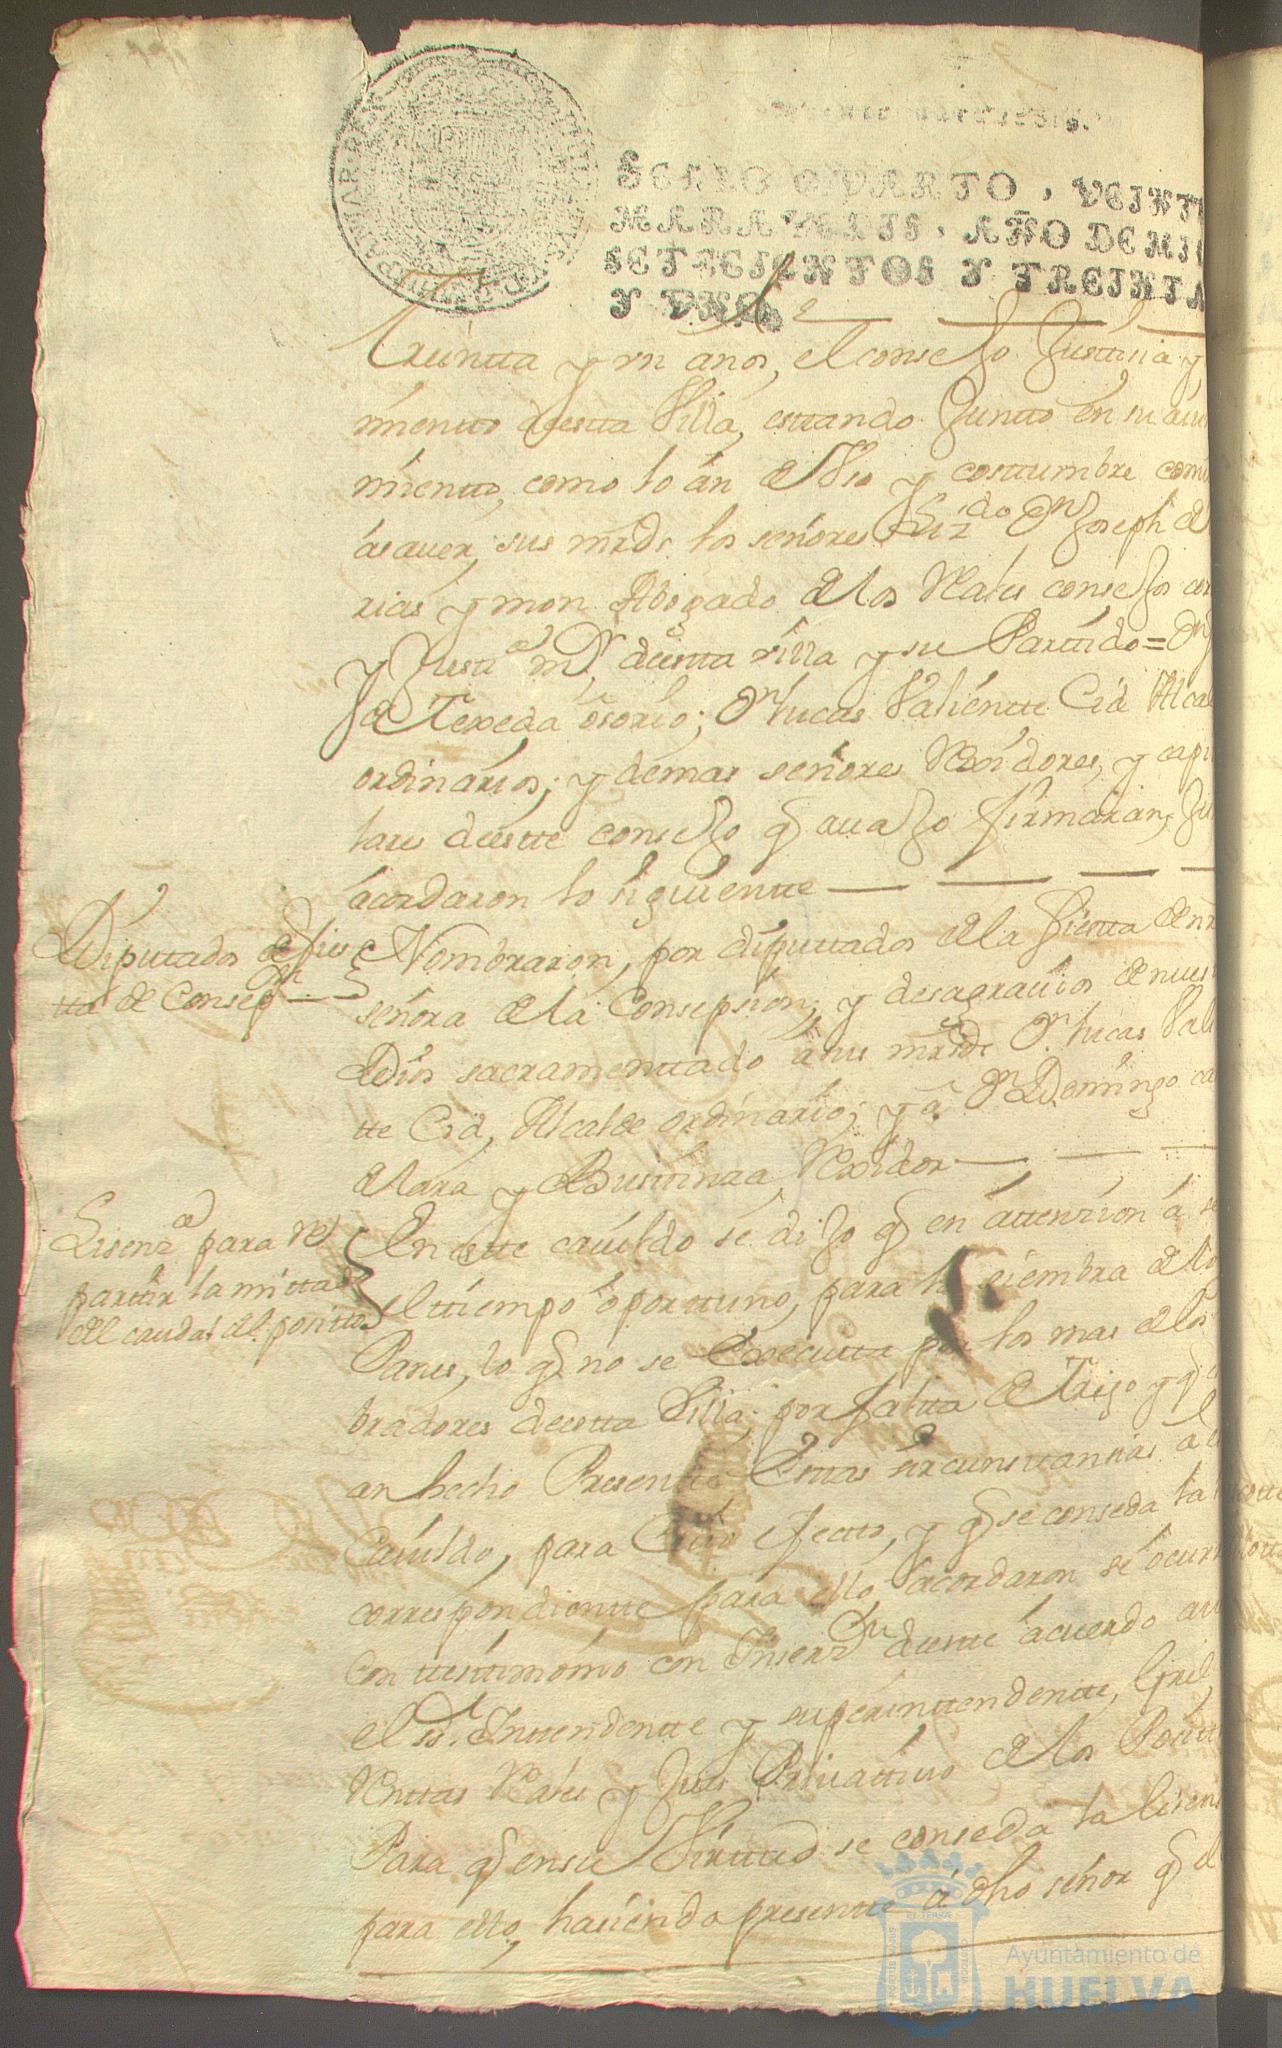 SELLO QVARTO, VEINT
MARAVEDIS, AÑO DE MIL
SETECIENTOS Y TREINTA
Y VNO.
Treintta y un anos, el conseJo Justtisia y
mientto desta Villa, esttando Juntto en su aiun
mientto, como lo án de Vso y costtumbre com
ásauer, sus mrds los señores Liz.do Dn Joseph de
rias y mon Abogado de los Rales conseJos cor
y Justta mr, deestta villa y su Parttido = Dn
de Texeda osorio; Dn lucas Valientte Cid Alcal
ordinários; y demas señores Rexidores, y capi
lares deestte conseJo q auaJo firmarán, Ju
ácordaron lo siguientte
Diputados de fies
tta de Consepn
Nombraron, por diputtados de la fiestta de nr
señora de la Consepsion; y desagrauios de nues
Dios sacramenttado á sus mrsds Dn lucas Vali
tte Cid, Alcalde ordinario; y á Dn Domingo ca
de lara y Bustinsa Rexidor
Lisenza para re
parttir la mittad
del caudal del positto
En estte cauildo se diJo q en áttenzion á se
el ttiempo oporttuno, para la siembra de lo
Panes, lo q no se Executta por los mas de los
bradores deestta Villa, por faltta de Trigo y q
an hecho Presentte Esttas sircunsttansias á e
Cauildo, para Cuio efectto, y q se conseda la
correspondientte para ello, acordaron se ócurr
con ttesttimónio con Inserzn destte ácuerdo an
el sr. Inttendentte y superinttendentte, Grel,
Renttas Rales y Jues Priuattiuo de los Positt
Para q ensu Virttud se conseda la lisens
para ello, hasiendo presentte á dho señor q el
Ayuntamiento de
HUELVA